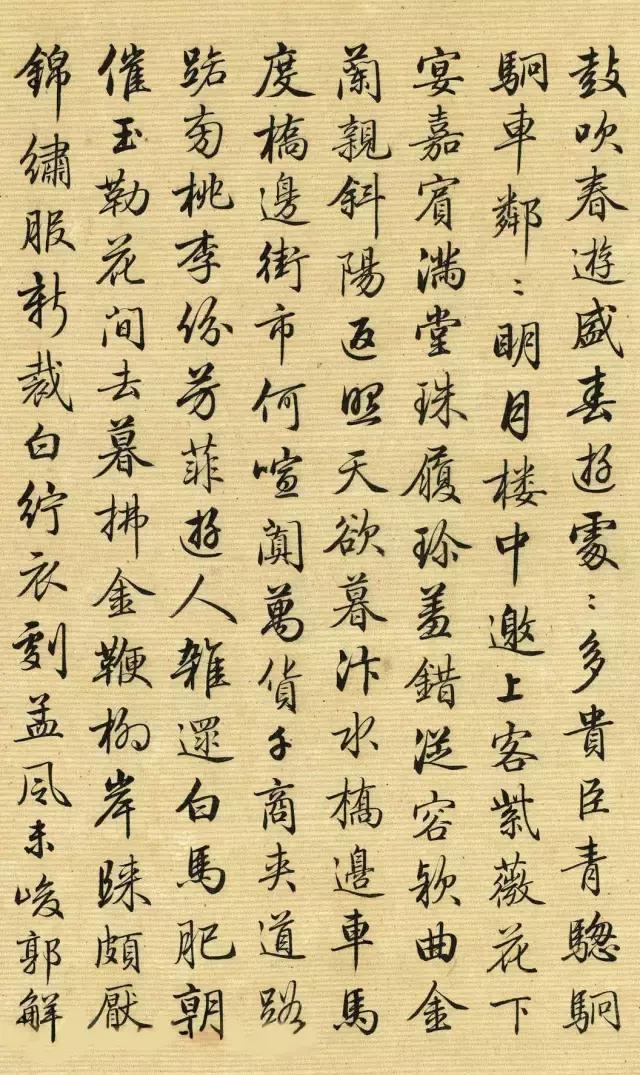 鼓吹春遊盛春遊處〻多貴臣青驄駉
駉車鄰〻明月楼中邀上客紫薇花下
宴嘉賓滿堂珠履珍羞錯從容欵曲金
蘭親斜陽返照天欲暮汴水橋邊車馬
度橋邊街市何喧闐萬貨千商夾道路
路旁桃李份芳菲遊人雜遝白馬肥朝
催玉勒花间去暮拂金鞭柳岸歸頗厭
錦繡服新裁白紵衣劇孟風未峻郭解